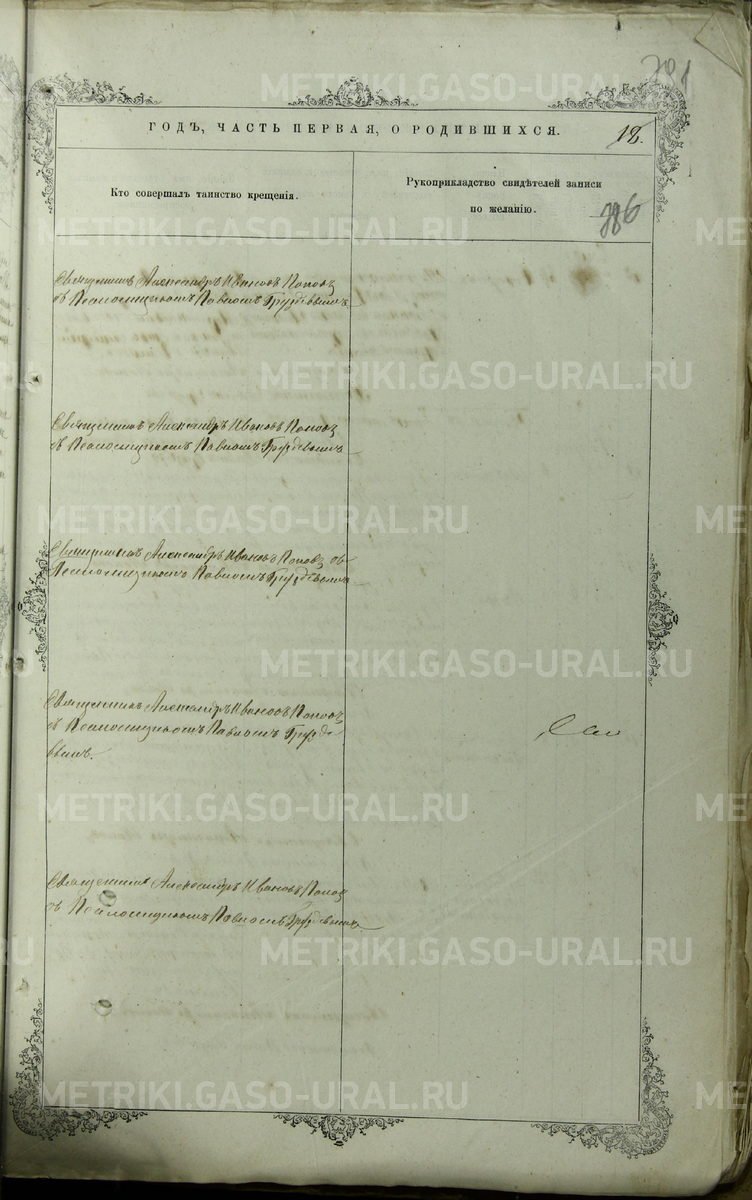 381
ГОДЪ, ЧАСТЬ ПЕРВАЯ, О РОДИВШИХСЯ.
12.
Кто совершалъ таинство крещенія.
Рукоприкладство свидѣтелей записи
по желанію.
386
Священникъ Александръ Ивановъ Поповъ
съ Псаломщикомъ Павломъ Груздевымъ
Священникъ Александръ Ивановъ Поповъ
съ Псаломщикомъ Павломъ Груздевымъ
Священникъ Александръ Ивановъ Поповъ съ
Псаломщикомъ Павломъ Груздевымъ
Священникъ Александръ Ивановъ Поповъ
съ Псаломщикомъ Павломъ Груздe
вымъ.
Священникъ Александръ Ивановъ Поповъ
съ Псаломщикомъ Павломъ Груздевымъ
METRIKI.GASO-URAL.RU